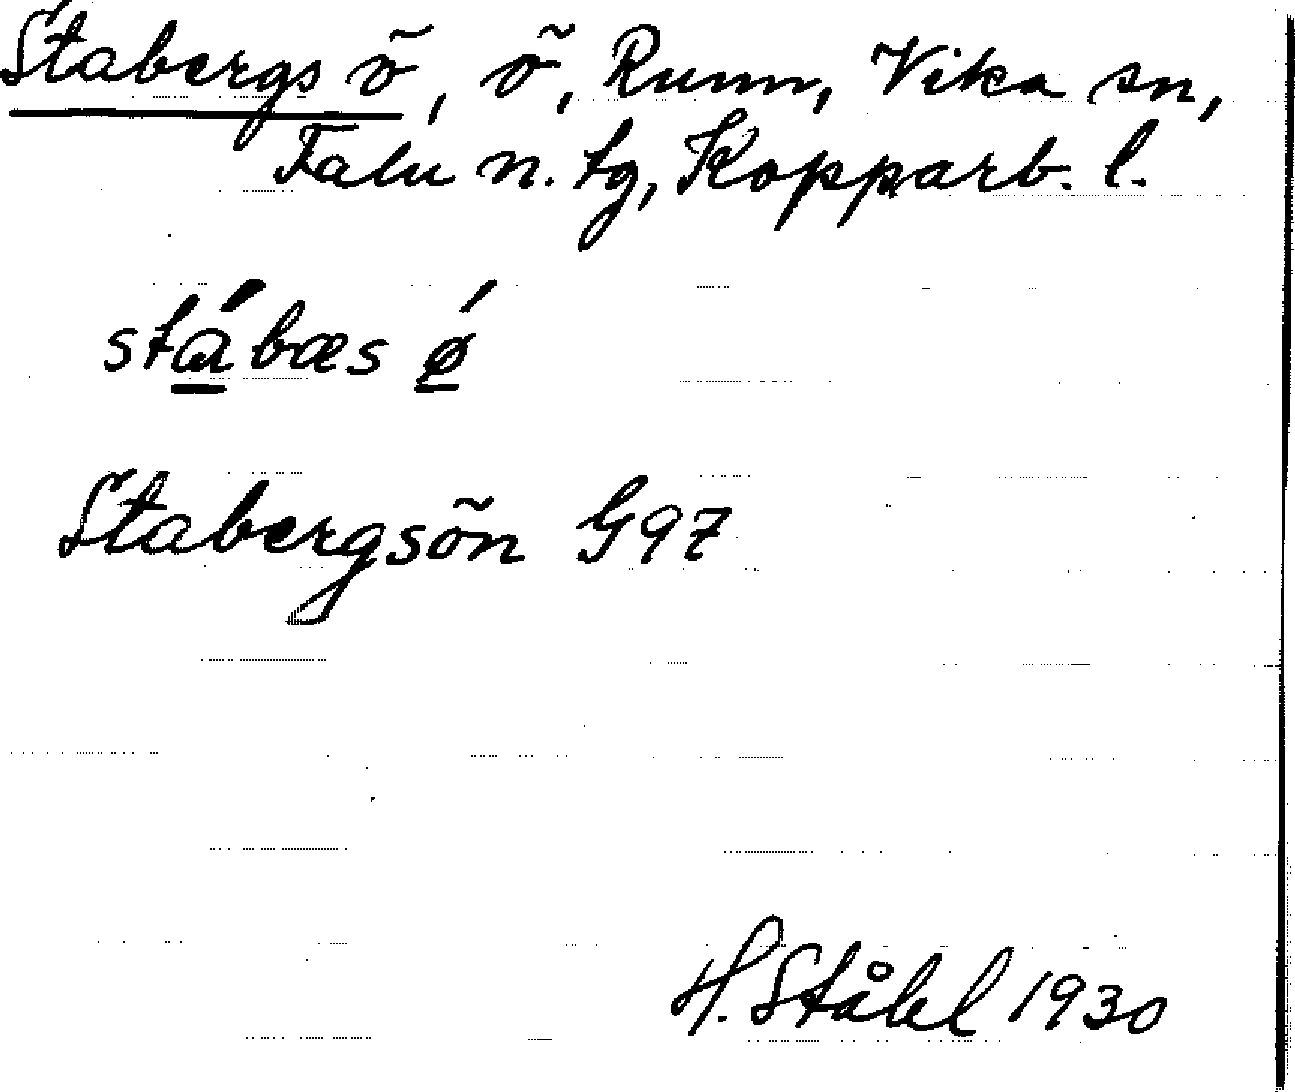 Stabergs ö, ö, Runn, Vika sn,
Falu n. tg, Kopparb. l.
stábæs ǿ
Stabergsön G97
H. Ståhl 1930